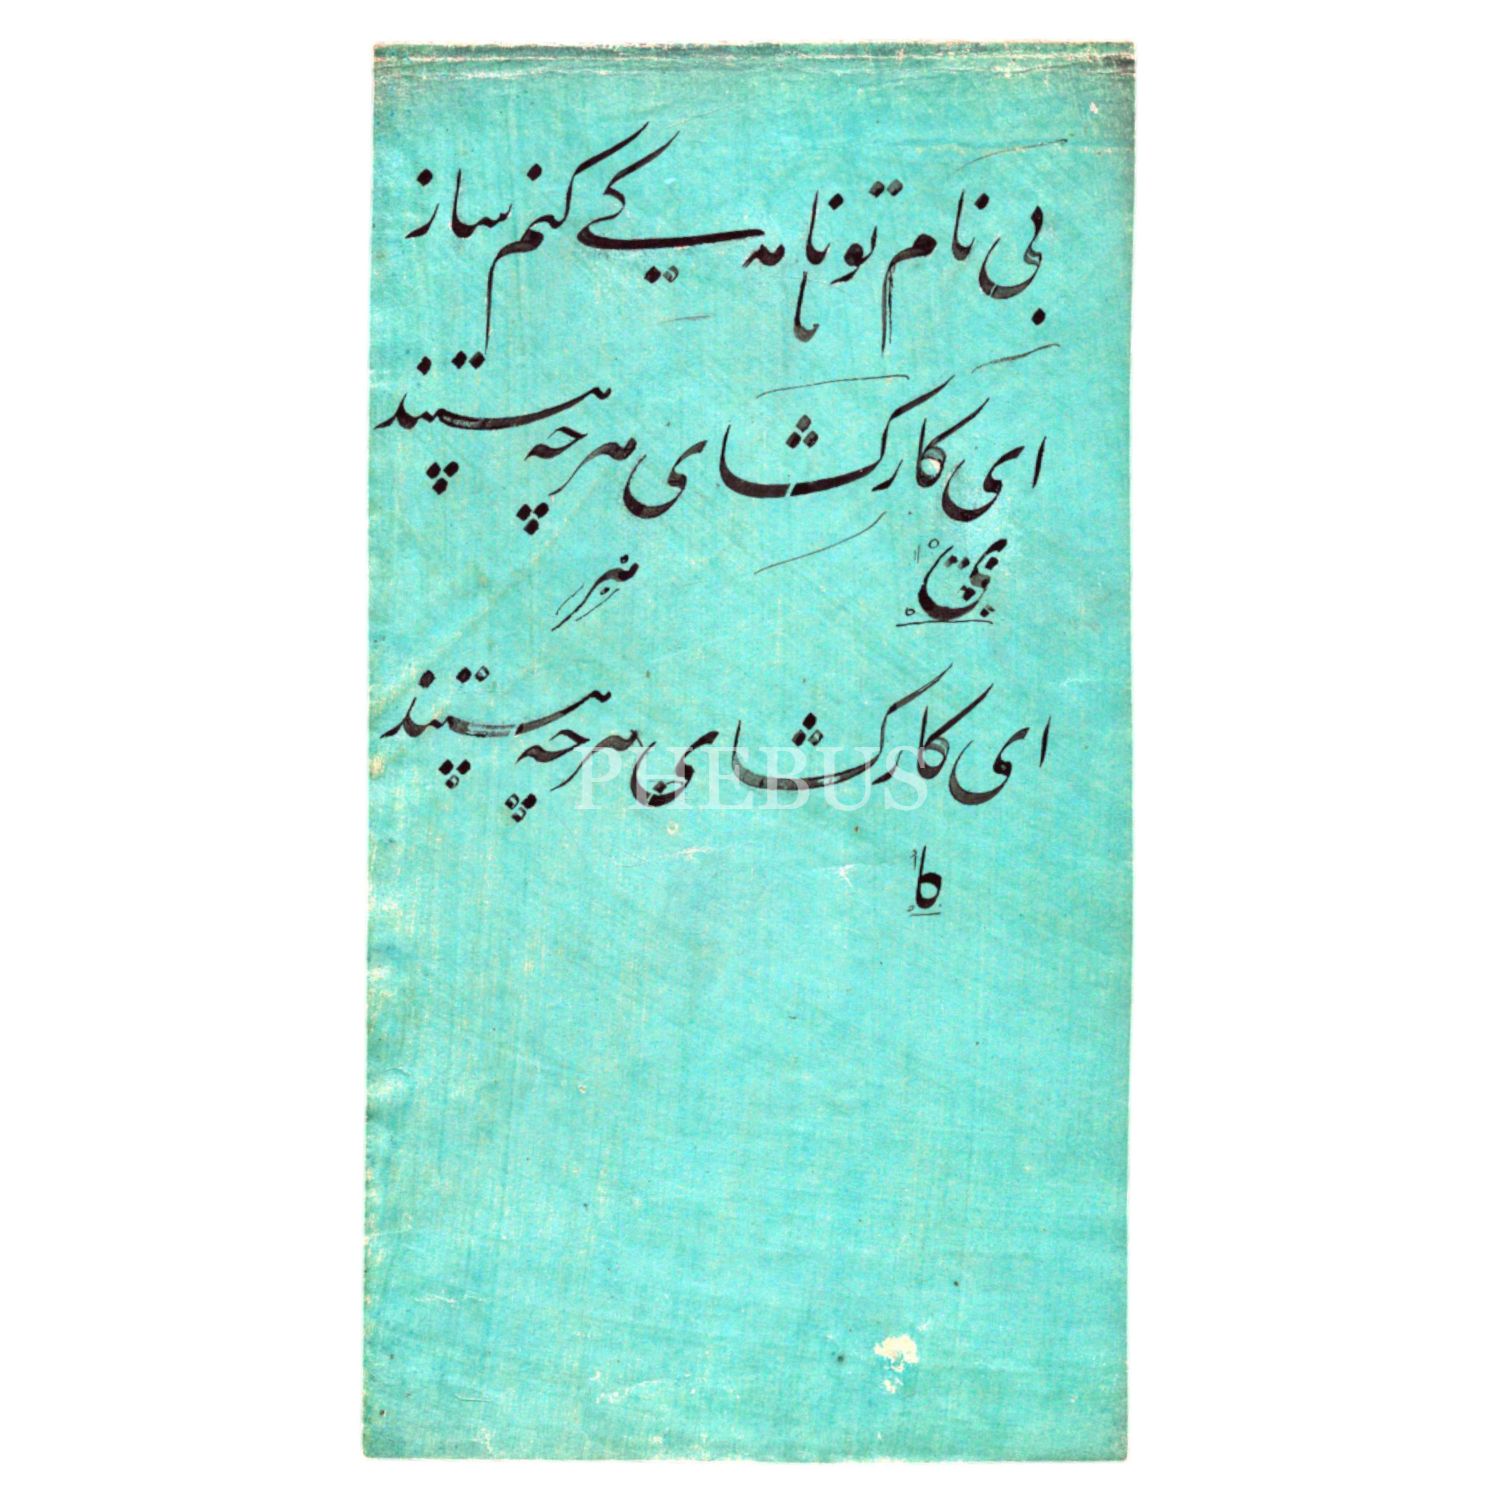 بی نام تو نامه کی کنم ساز
نا
ای کارکشای هرچه هستند
ای کارکشای هرچه هستند
PHEBUS
کا